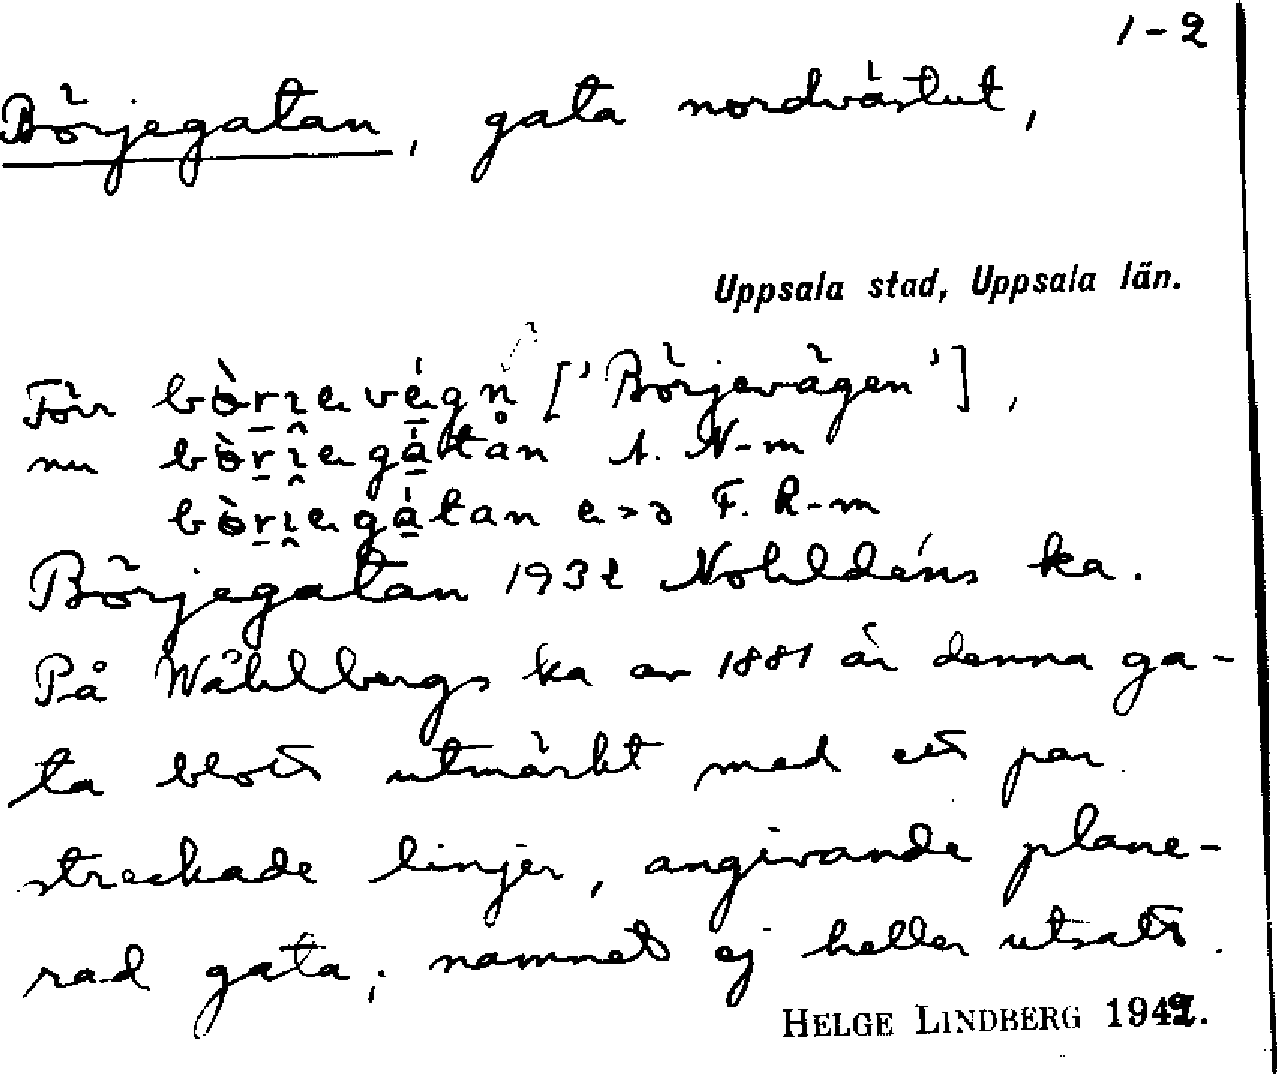 1-2
Börjegatan, gata nordvästut,
Uppsala stad, Uppsala län.
Förr bòrı̯evégn̥ ['Börjevägen'],
nu bòrı̯egátan A. N-m
bòrı̯egátan e>ə F. R-m
Börjegatan 1932 Nohldéns ka.
På Wåhlbergs ka av 1881 är denna ga-
ta blott utmärkt med ett par
streckade linjer, angivande plane-
rad gata; namnet ej heller utsatt.
HELGE LINDBERG 1942.